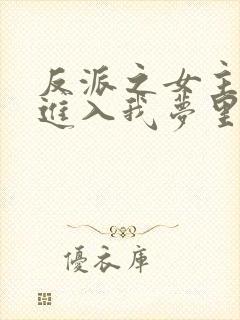 反派之女主
進入我夢里
優衣庫